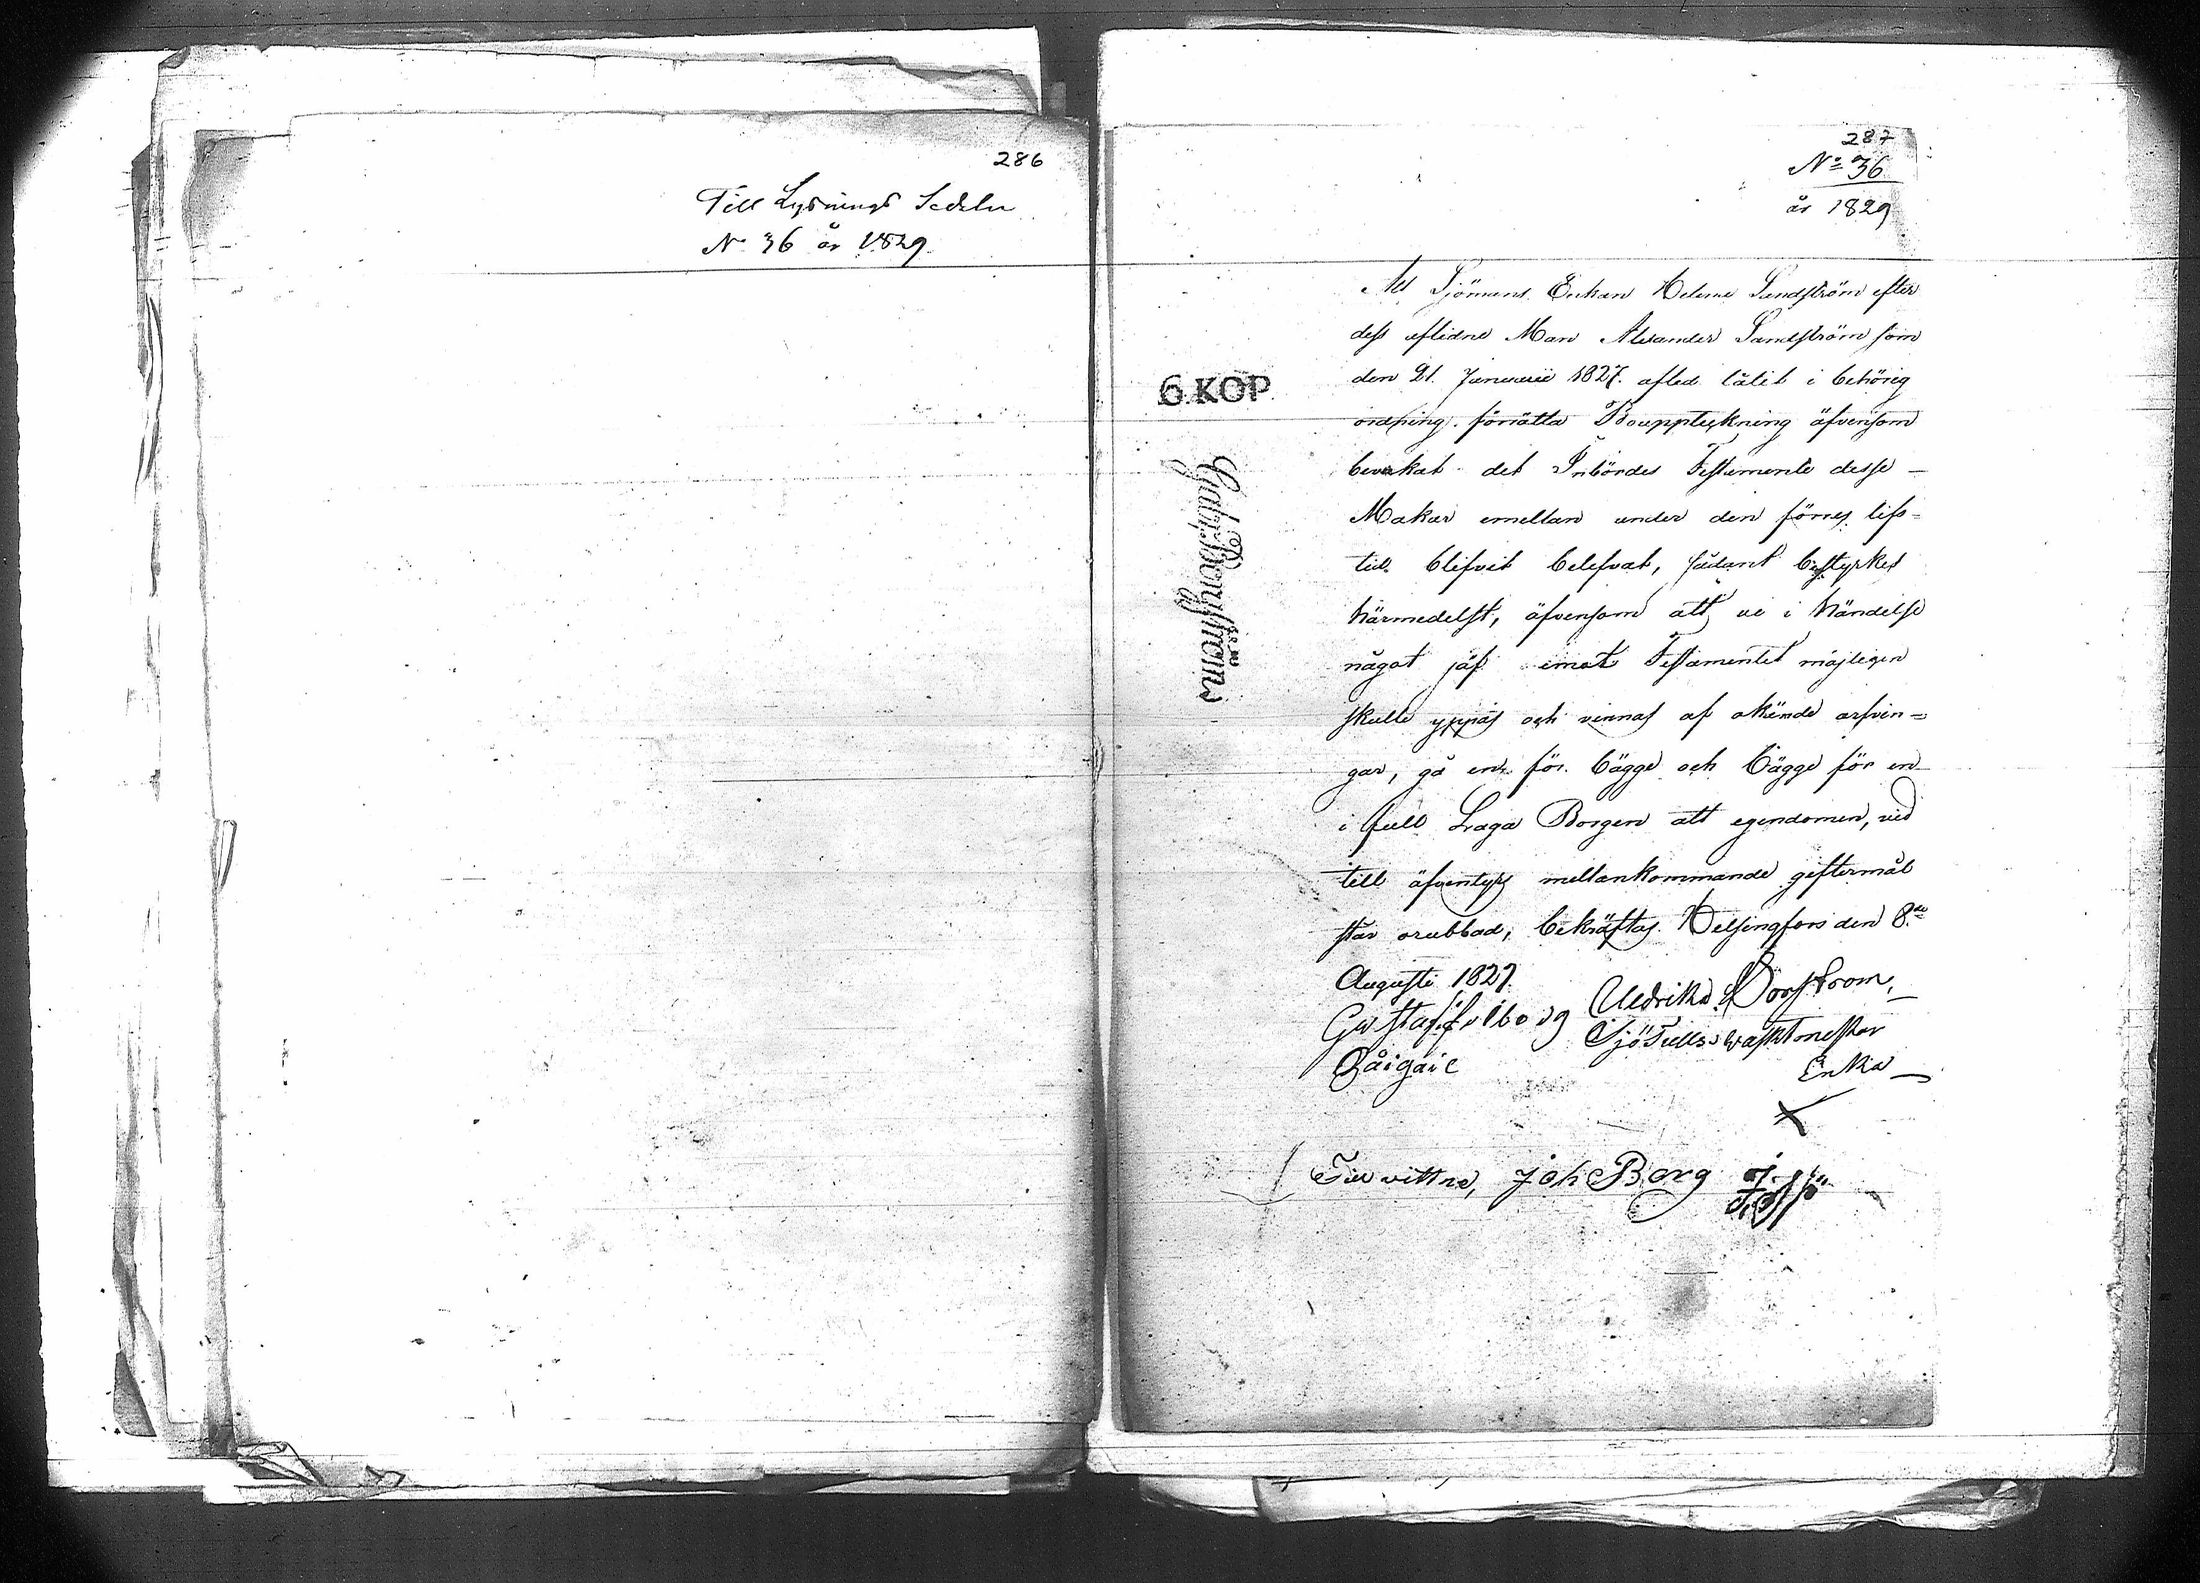 286
Till Lysnings Sedeln
No 36 år 1829
287
No 36
år 1829
6 KOP
Att Sjömans Enkan Helena Sandström efter
dess aflidne Man Alexander Sandström som
den 21. Januarii 1827. afled låtit i behörig
ordning förrätta Bouppteckning äfvensom
bevakat det Inbördes Testamente desse
Makar emellan under den förres lifs-
tid blifvit belefvat, sådant bestyrkes
härmedelst, äfvensom att vi i händelse
något jäf emot Testamentet möjligen
skulle yppas och vinnas af okände arfvin-
gar, gå en för bägge och bägge för en
i full Laga Borgen att egendomen, vid
till äfventyrs mellankommande giftermål
står orubbad, bekräftas. Helsingfors den 8de
Augusti 1829.
Ulrika
Sjötulls vaktmestar
Enka
Till vittne, Joh Borg